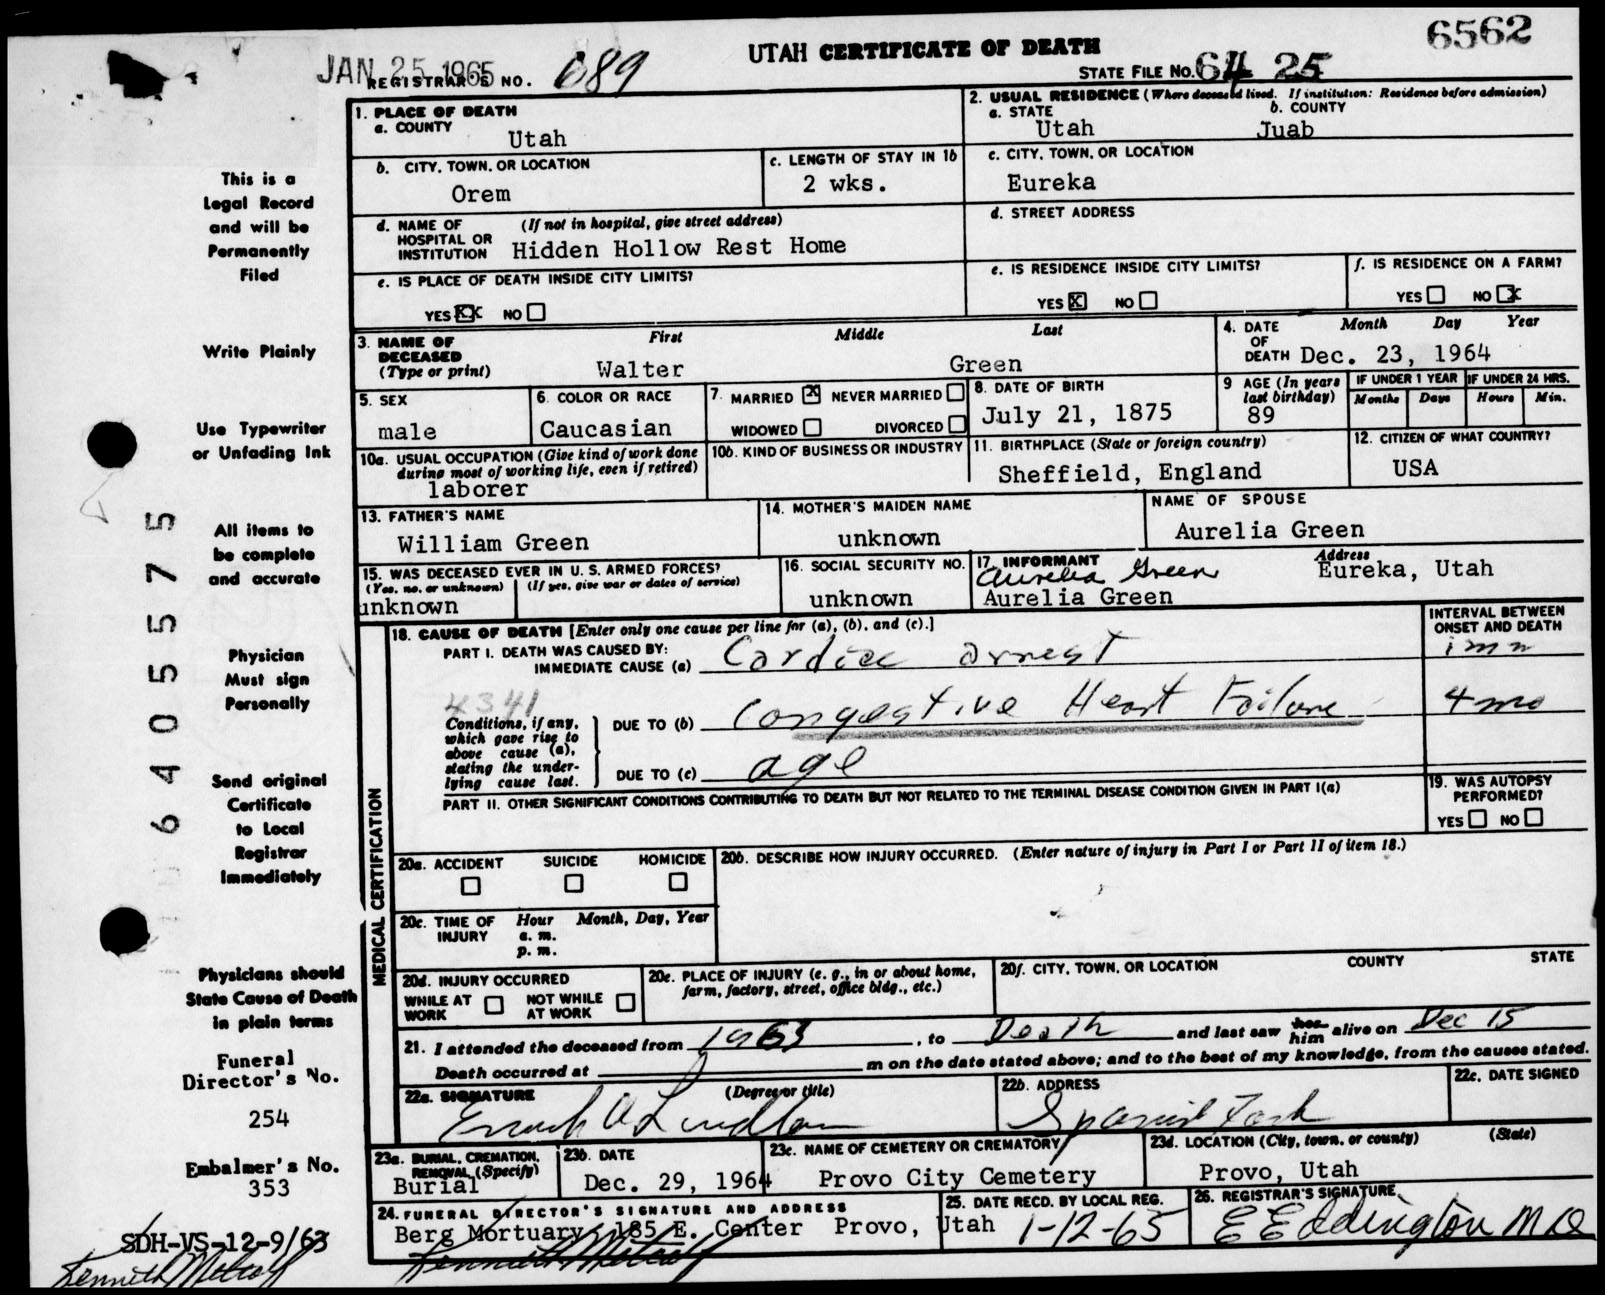 6562
UTAH CERTIFICATE OF DEATH
JAN 25 1965
REGISTRAR'S NO. 689
STATE FILE NO. 64 25
1. PLACE OF DEATH
a. COUNTY
Utah
2. USUAL RESIDENCE (Where deceased lived. If institution: Residence before admission)
a. STATE b. COUNTY
Utah Juab
b. CITY, TOWN, OR LOCATION
Orem
c. LENGTH OF STAY IN 1b
2 wks.
c. CITY, TOWN, OR LOCATION
Eureka
d. NAME OF HOSPITAL OR INSTITUTION (If not in hospital, give street address)
Hidden Hollow Rest Home
d. STREET ADDRESS
e. IS PLACE OF DEATH INSIDE CITY LIMITS?
YES XX NO
e. IS RESIDENCE INSIDE CITY LIMITS?
YES X NO
f. IS RESIDENCE ON A FARM?
YES NO X
3. NAME OF DECEASED (Type or print)
First Middle Last
Walter Green
4. DATE OF DEATH
Month Day Year
Dec. 23, 1964
5. SEX
male
6. COLOR OR RACE
Caucasian
7. MARRIED X NEVER MARRIED
WIDOWED DIVORCED
8. DATE OF BIRTH
July 21, 1875
9 AGE (In years last birthday)
89
IF UNDER 1 YEAR
Months Days
IF UNDER 24 HRS.
Hours Min.
10a. USUAL OCCUPATION (Give kind of work done during most of working life, even if retired)
laborer
10b. KIND OF BUSINESS OR INDUSTRY
11. BIRTHPLACE (State or foreign country)
Sheffield, England
12. CITIZEN OF WHAT COUNTRY?
USA
13. FATHER'S NAME
William Green
14. MOTHER'S MAIDEN NAME
unknown
NAME OF SPOUSE
Aurelia Green
15. WAS DECEASED EVER IN U. S. ARMED FORCES?
(Yes, no, or unknown) (If yes, give war or dates of service)
unknown
16. SOCIAL SECURITY NO.
unknown
17. INFORMANT
Aurelia Green
Aurelia Green
Address
Eureka, Utah
MEDICAL CERTIFICATION
18. CAUSE OF DEATH [Enter only one cause per line for (a), (b), and (c).]
INTERVAL BETWEEN ONSET AND DEATH
PART I. DEATH WAS CAUSED BY:
IMMEDIATE CAUSE (a) Cardiac arrest
4341
Conditions, if any, which gave rise to above cause (a), stating the underlying cause last.
DUE TO (b) Congestive Heart Failure 4 mo
DUE TO (c) age
PART II. OTHER SIGNIFICANT CONDITIONS CONTRIBUTING TO DEATH BUT NOT RELATED TO THE TERMINAL DISEASE CONDITION GIVEN IN PART I(a)
19. WAS AUTOPSY PERFORMED?
YES NO
20a. ACCIDENT SUICIDE HOMICIDE
20b. DESCRIBE HOW INJURY OCCURRED. (Enter nature of injury in Part I or Part II of item 18.)
20c. TIME OF INJURY
Hour Month, Day, Year
a. m.
p. m.
20d. INJURY OCCURRED
WHILE AT WORK NOT WHILE AT WORK
20e. PLACE OF INJURY (e. g., in or about home, farm, factory, street, office bldg., etc.)
20f. CITY, TOWN, OR LOCATION COUNTY STATE
21. I attended the deceased from 1963, to Death and last saw her him alive on Dec 15
Death occurred at m on the date stated above; and to the best of my knowledge, from the causes stated.
22a. SIGNATURE (Degree or title)
22b. ADDRESS
Spanish Fork
22c. DATE SIGNED
23a. BURIAL, CREMATION, REMOVAL (Specify)
Burial
23b. DATE
Dec. 29, 1964
23c. NAME OF CEMETERY OR CREMATORY
Provo City Cemetery
23d. LOCATION (City, town, or county) (State)
Provo, Utah
24. FUNERAL DIRECTOR'S SIGNATURE AND ADDRESS
Berg Mortuary 185 E. Center Provo, Utah
Kenneth Metcalf
25. DATE RECD. BY LOCAL REG.
1-12-65
26. REGISTRAR'S SIGNATURE
E E Eddington M D
This is a
Legal Record
and will be
Permanently
Filed
Write Plainly
Use Typewriter
or Unfading Ink
All items to
be complete
and accurate
Physician
Must sign
Personally
Send original
Certificate
to Local
Registrar
Immediately
Physicians should
State Cause of Death
in plain terms
Funeral
Director's No.
254
Embalmer's No.
353
SDH-VS-12-9/63
Kenneth Metcalf
64055575